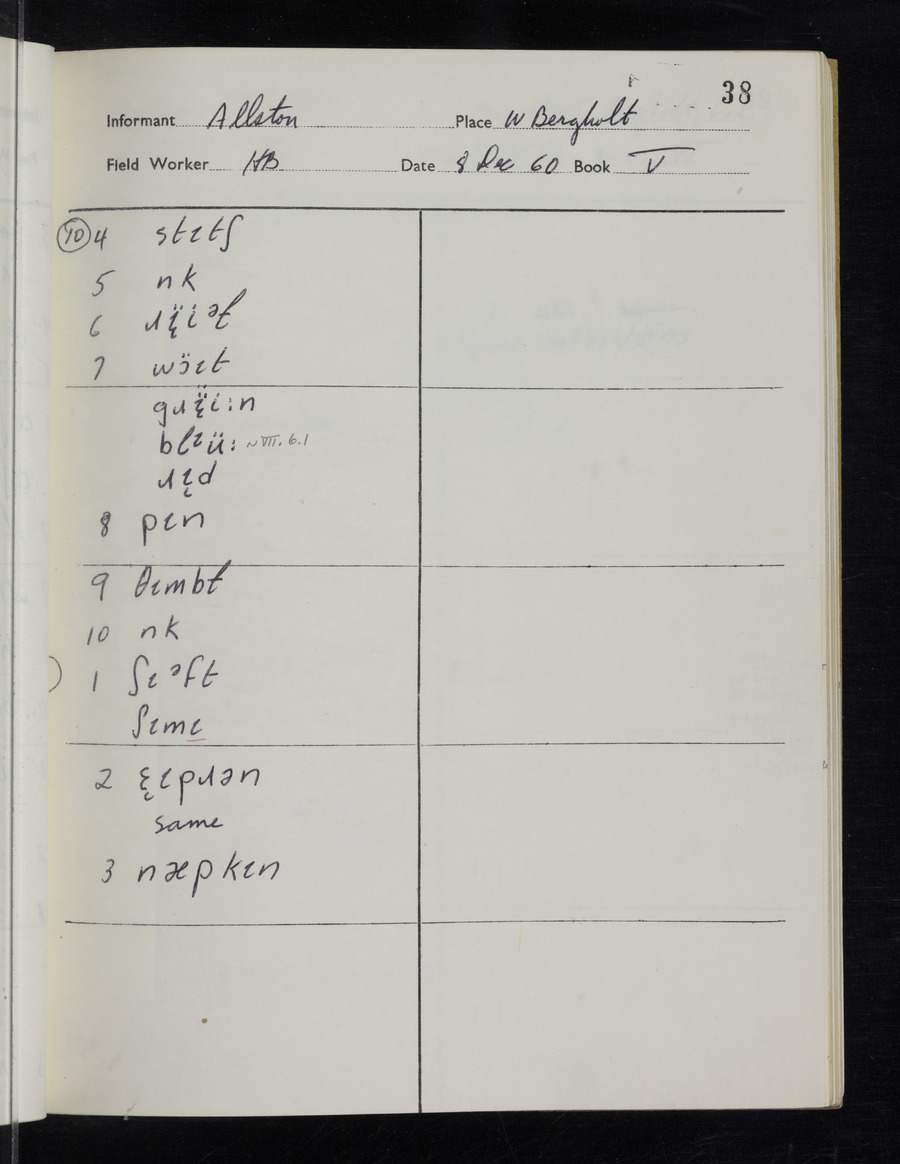 38
Informant Allston Place W Bergholt
Field Worker HB Date 8 Dec 60 Book V
10 4 stɪtʃ
5 nk
6
7 wɔ̈ɪt
bləü: ~VIII. 6.1
8 pɪn
9 θɪmbɫ
10 nk
1 ʃɪəft
ʃɪmɪ
2 ɛ̨ɪpɹən
same
3 næpkɪn